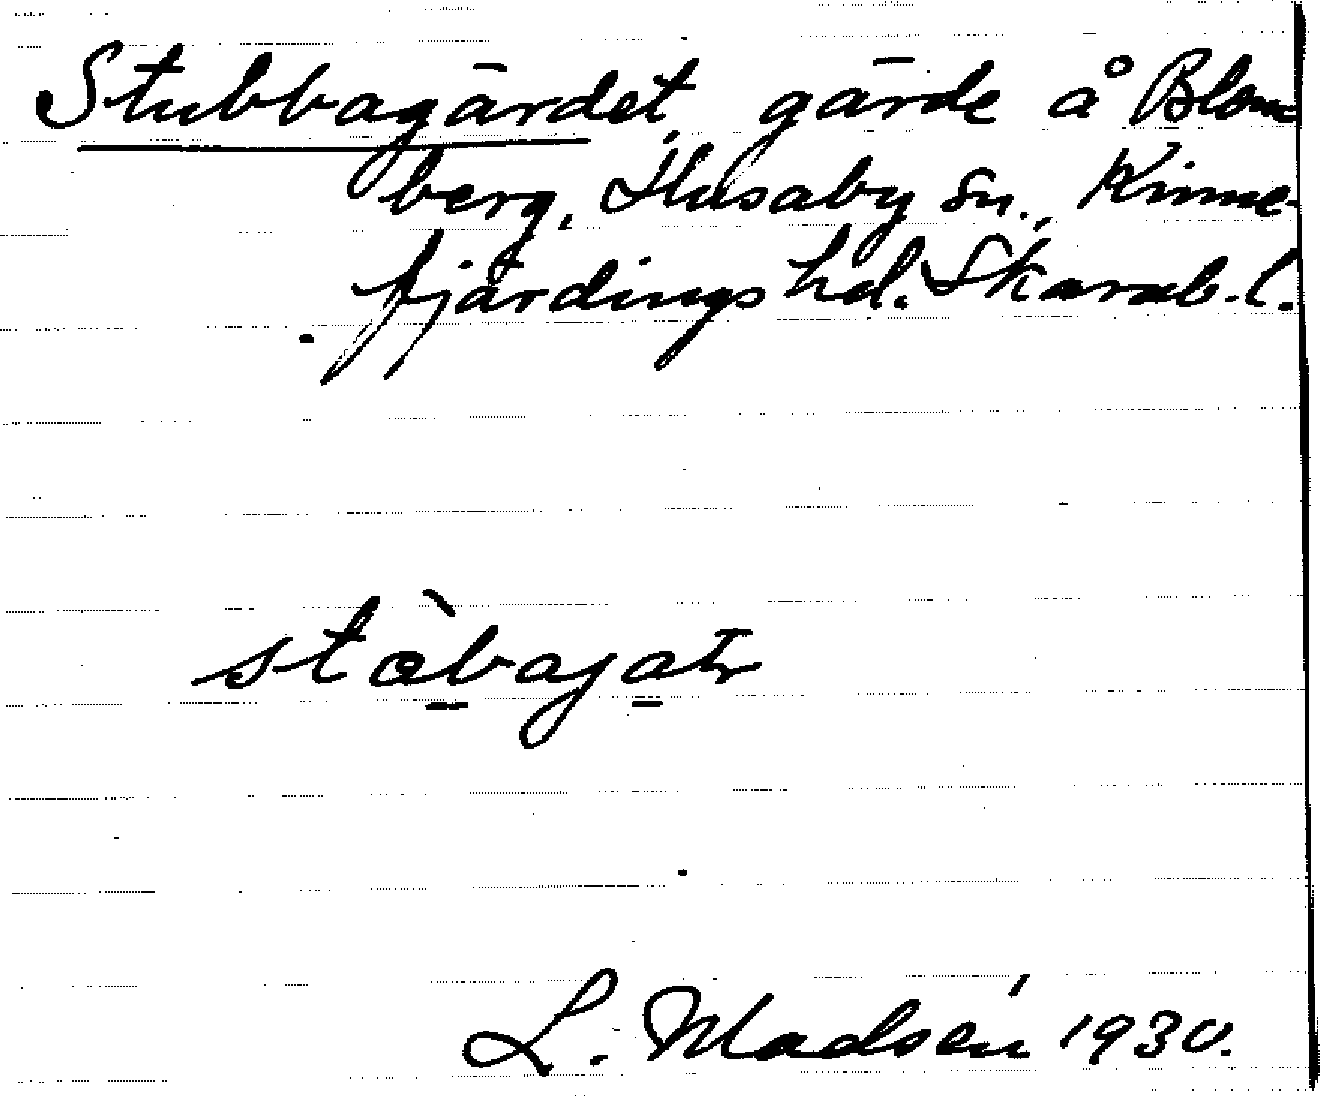 Stubbagärdet, gärde å Blom
berg, Husaby sn., Kinne-
fjärdings hd. Skarab. l.
L. Madsén 1930.